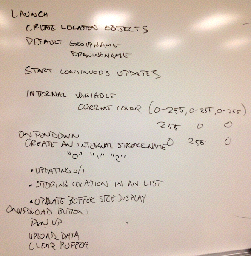 LAUNCH
CREATE LOCATION OBJECTS
DEFAULT GROUPNAME
START CONTINUOUS UPDATES
INTERNAL VARIABLE
CURRENT COLOR (0-255, 0-255, 0-255)
255 0 0
0 255 0
CREATE AN INTERNAL
"0" "1" "2"
• UPDATING
• STORING LOCATION IN AN LIST
• UPDATE BUFFER SIZE DISPLAY
ON UPLOAD BUTTON
UPLOAD DATA
CLEAR BUFFER